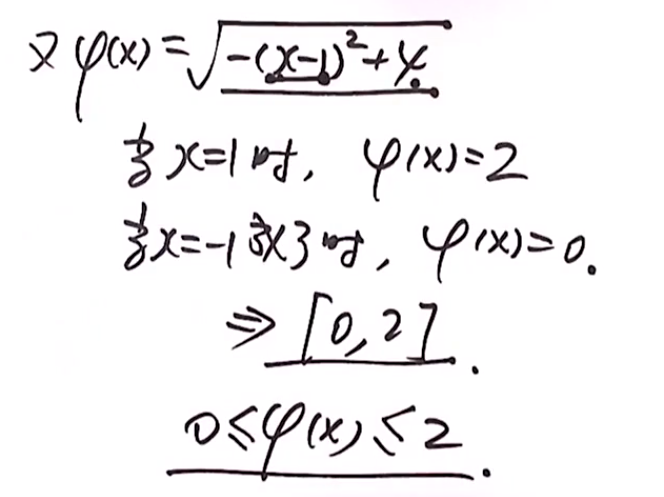 又 φ(x)=√(-(x-1)²+4)
当 x=1 时, φ(x)=2
当 x=-1 或 3 时, φ(x)=0.
⇒ [0,2].
0≤φ(x)≤2.